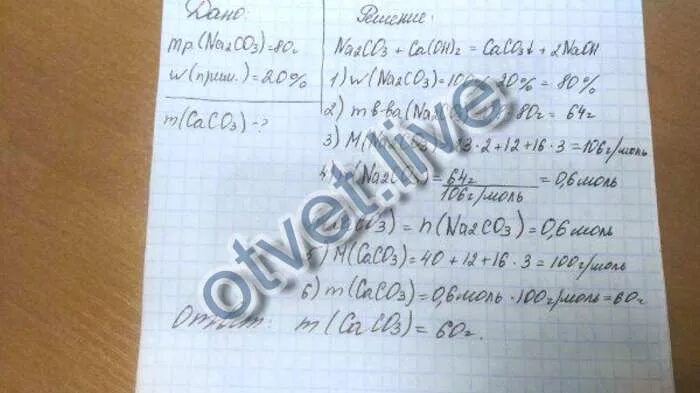 Дано:
mр.(Na2CO3)=80г
w(прим.)=20%
m(CaCO3)-?
Решение:
Na2CO3 + Ca(OH)2 = CaCO3↓ + 2NaOH
1) w(Na2CO3)=100% 20% = 80%
2) m в-ва(Na2CO3) 80г = 64г
3) M(Na2CO3) 23·2+12+16·3=106г/моль
4) (Na2CO3)= 64г/106г/моль = 0,6моль
(CaCO3) = n(Na2CO3)=0,6моль
5) M(CaCO3)=40+12+16·3=100г/моль
6) m(CaCO3)=0,6моль·100г/моль=60г
Ответ: m(CaCO3)=60г.
otvet.live